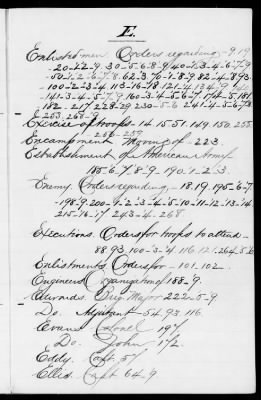 E.
Enlistment Orders regarding - 9.19
-20-22-9 30-5.6.8-9 40-1-3-4-6-7-9
-50-1-2-6-7-8 62-3 70-1-8-9 82-4-8 93
-100-2-3-4 113-16-18 121-4 134-9
-141-3-4-5-7.9 160-3-4-5-6-7 174-5 181
182-217 228-29 230-5-6 241-4-5-6-7-8
253. 268-9
Exercise of troops. 14 15.51.149.150.255
256-259
Encampment Moving of - 223.
Establishment of American Army
185-6-7-8-9 190-1-2-3.
Enemy Orders regarding - 18.19.195-6-7-
-198-9-200-1-2-3-4-5-10-11-12-13-14
215-16-17 243-4-268.
Executions. Orders for troops to attend -
88.93.100-3-4 116.121.264-5-6
Enlistments Orders for - 101.102.
Engineers Organization of 188-9.
Edwards. Brig. Major 222-5-9
Do. Adjutant 54.93.116.
Evans Colonel 197
Do. John 172.
Eddy. Capt. 57
Ellis. Capt 64-9